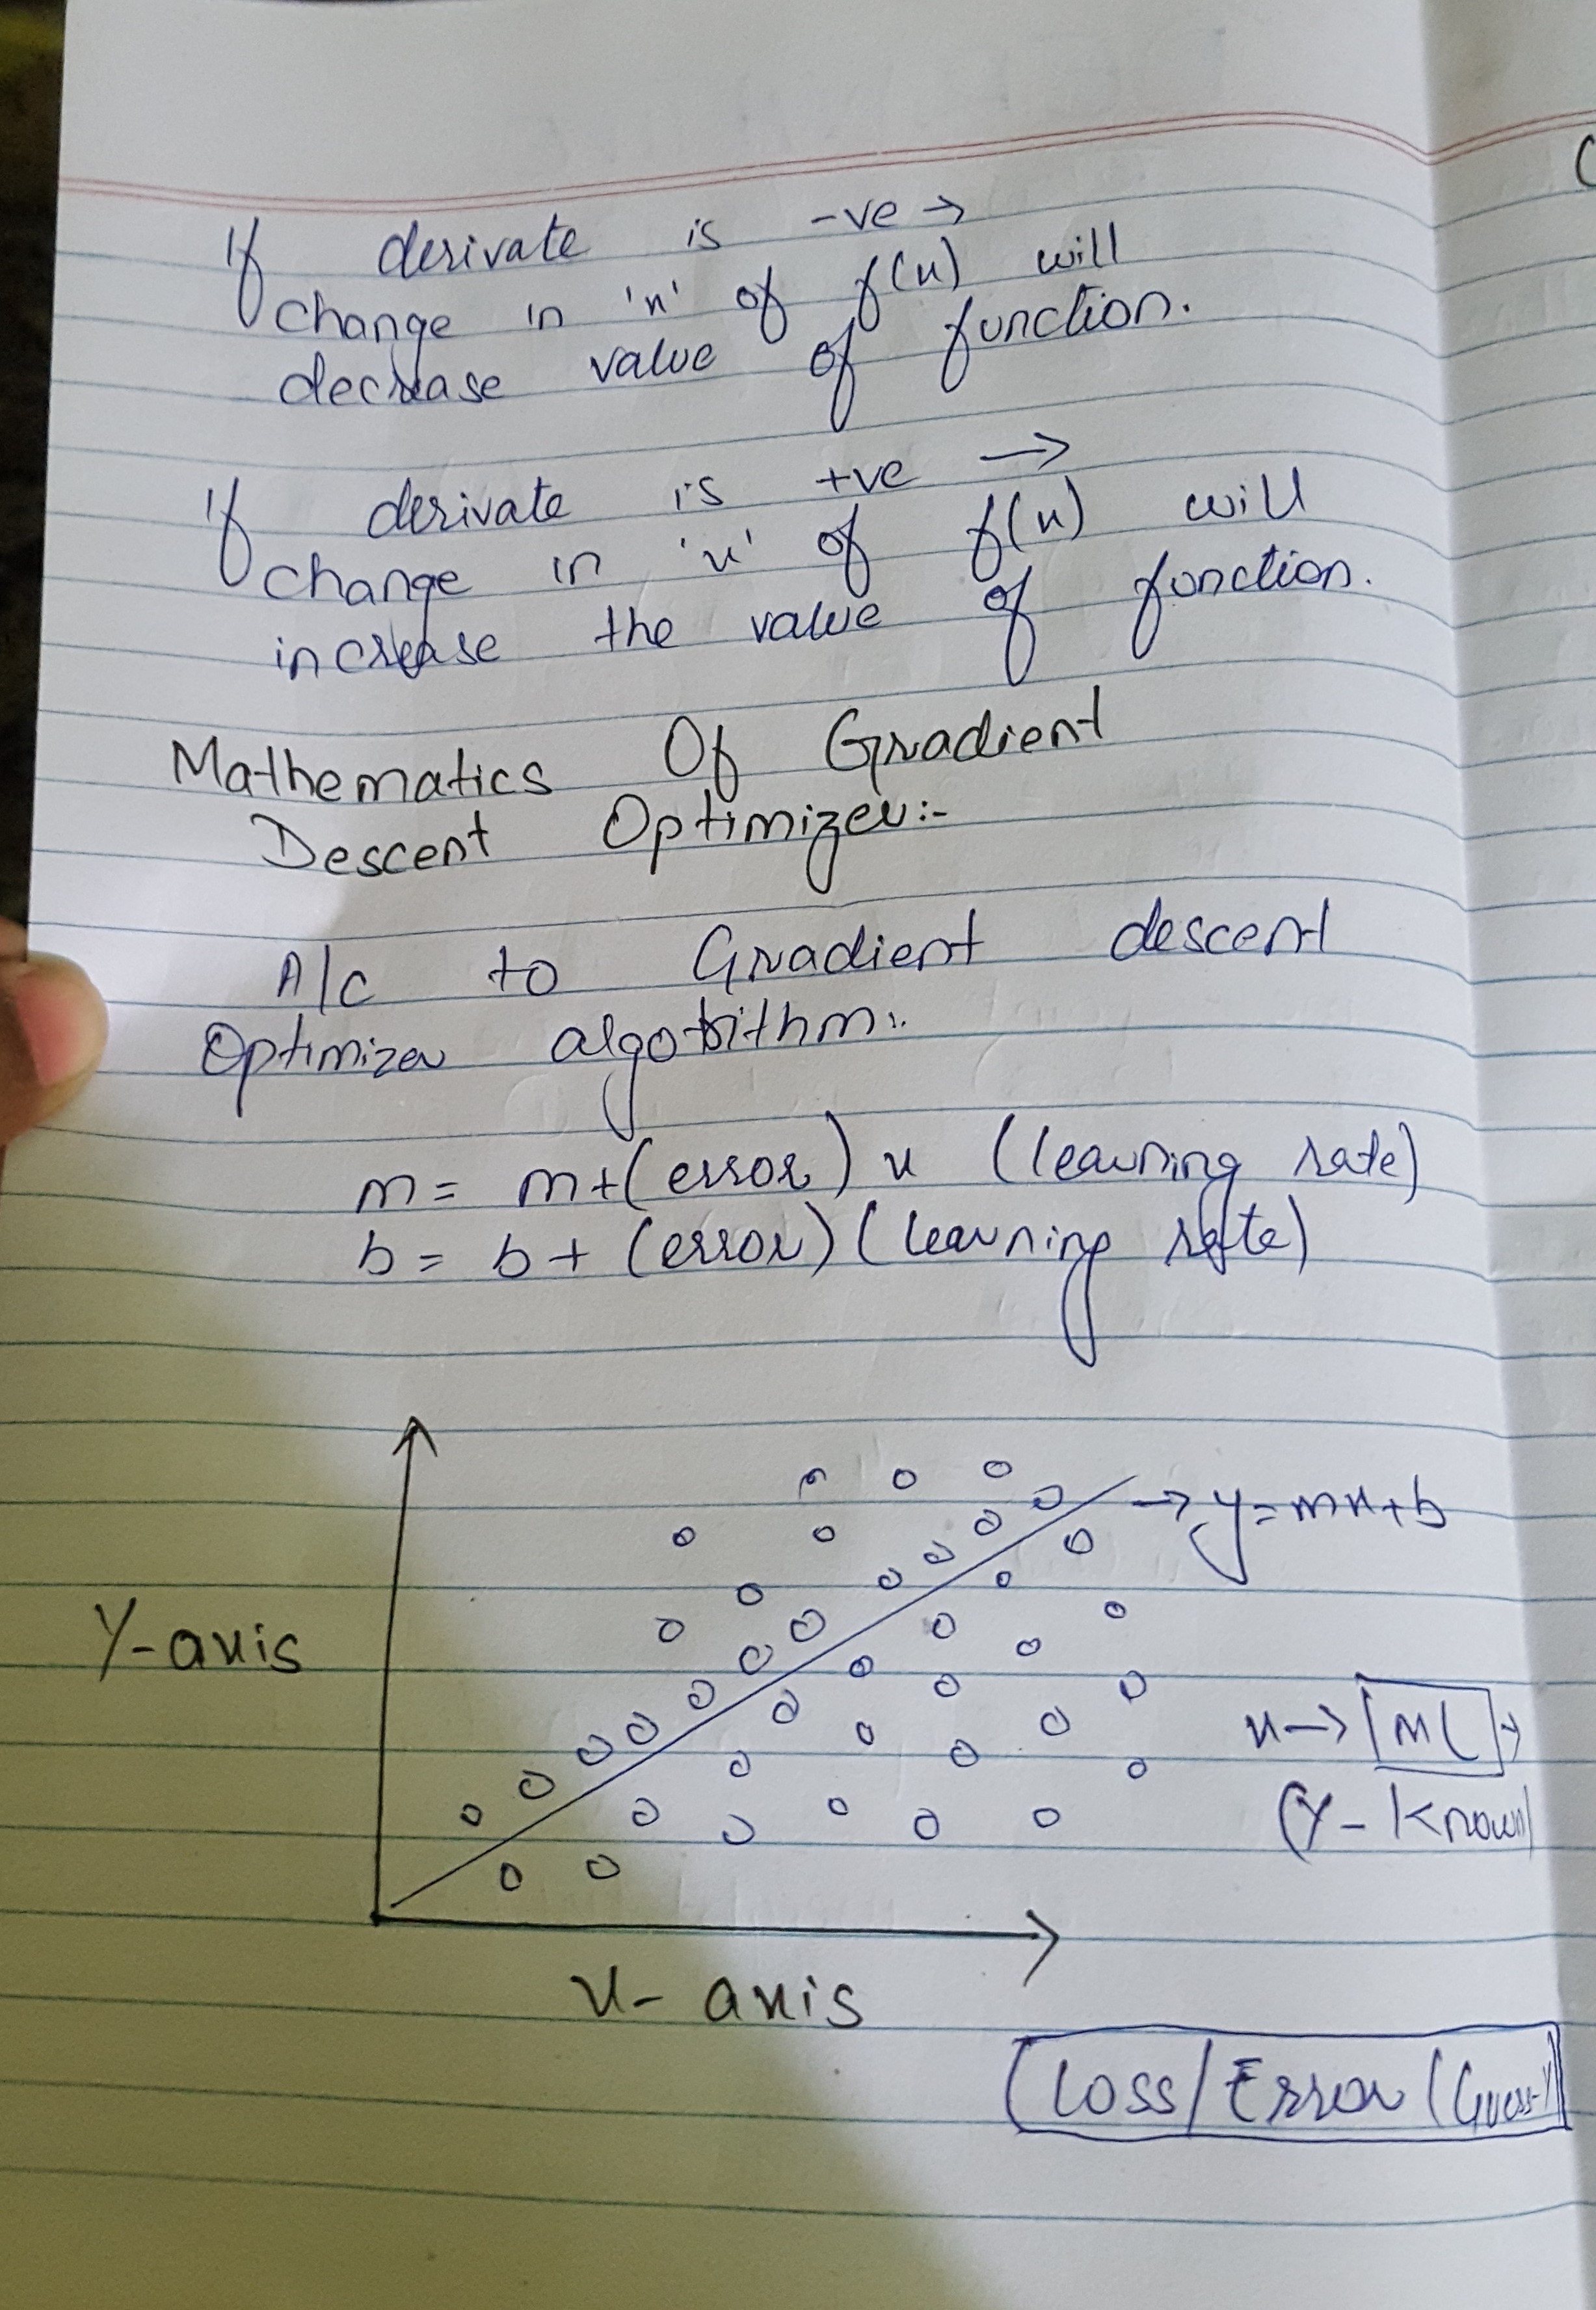 If derivate is -ve →
change in 'x' of f(x) will
decrease value of function.
If derivate is +ve →
change in 'x' of f(x) will
increase the value of function.
Mathematics Of Gradient
Descent Optimizer:-
A/c to Gradient descent
Optimizer algorithm:.
m = m+(error) x (learning rate)
b = b + (error) (learning rate)
→ y=mx+b
Y-axis
x → ML →
(Y- Known
x- axis
Loss/Error (Guess-Y